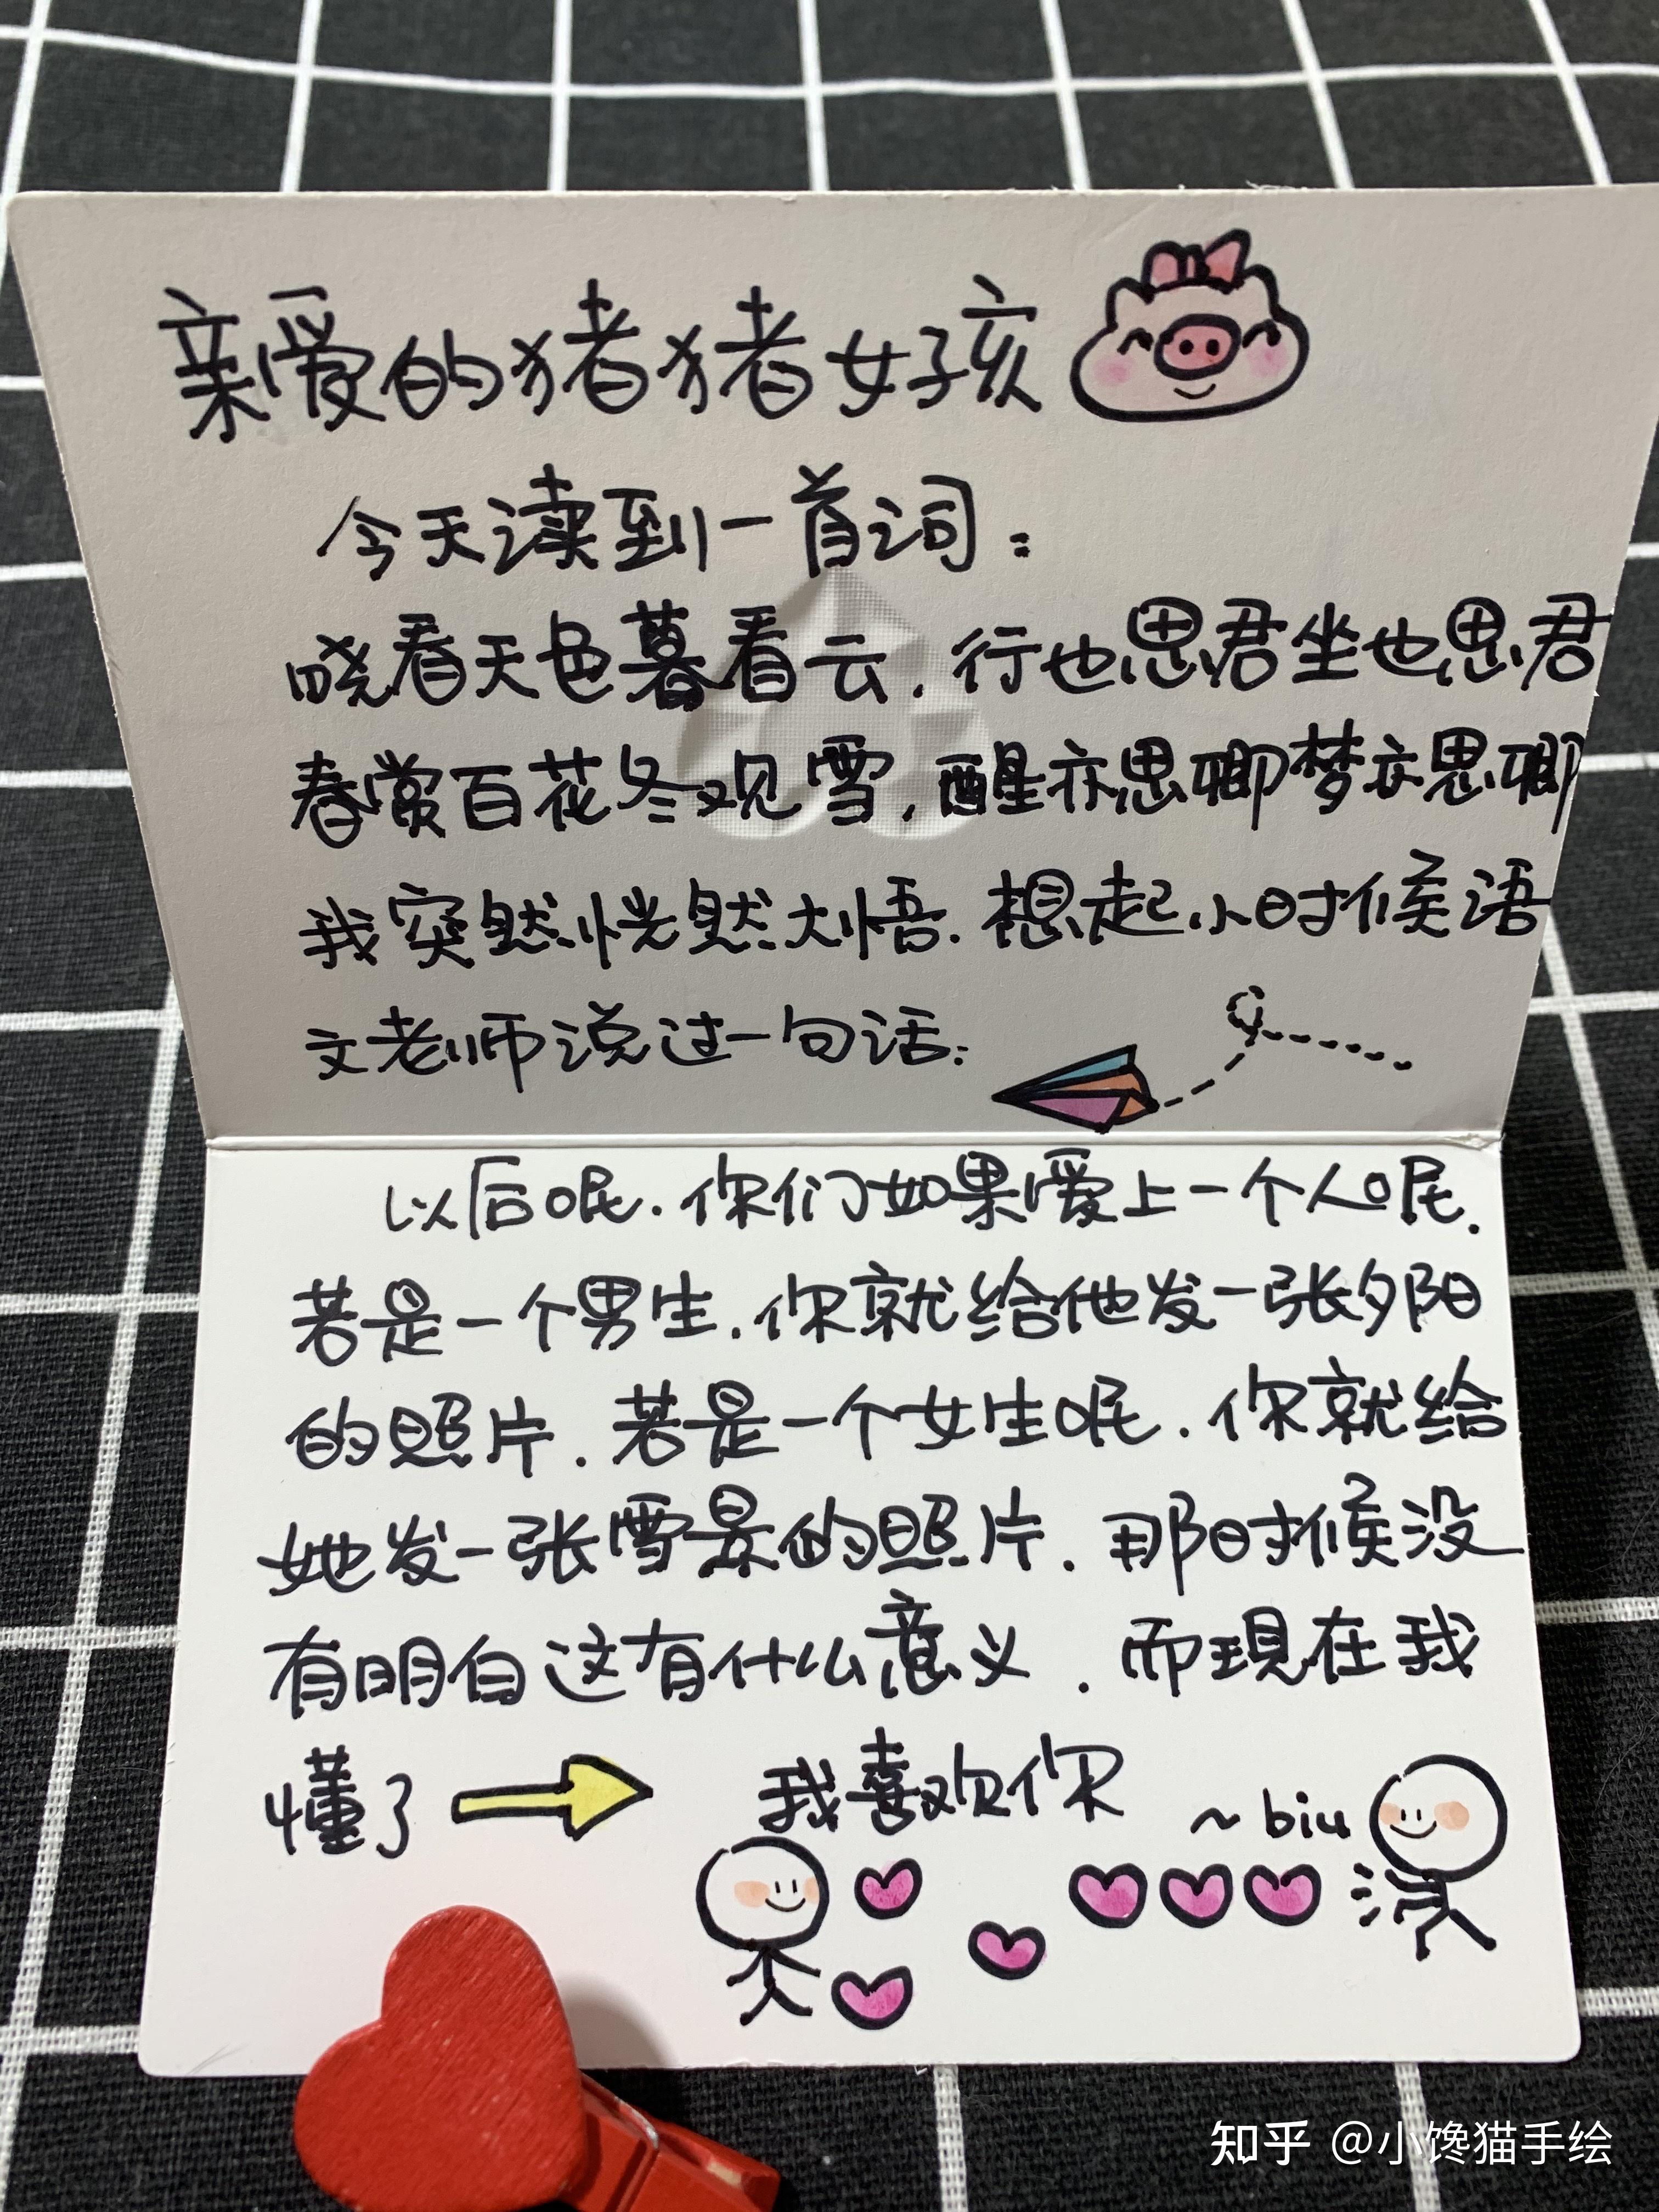 亲爱的猪猪女孩
今天读到一首词：
晓看天色暮看云，行也思君坐也思君
春赏百花冬观雪，醒亦思卿梦亦思卿
我突然恍然大悟．想起小时候语
文老师说过一句话：
以后呢．你们如果爱上一个人呢．
若是一个男生．你就给他发一张夕阳
的照片．若是一个女生呢．你就给
她发一张雪景的照片．那时候没
有明白这有什么意义．而現在我
懂了 我喜欢你 ~biu
知乎 @小馋猫手绘